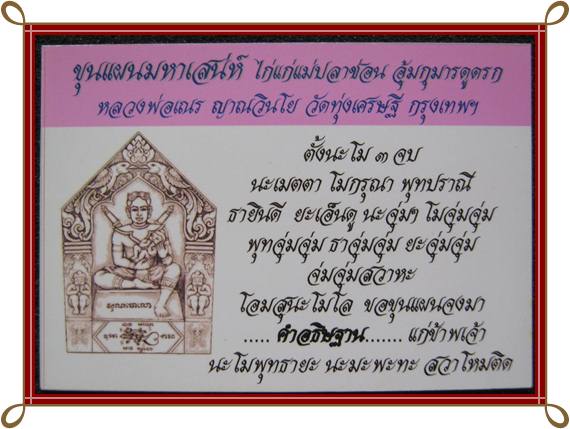 ขุนแผนมหาเสน่ห์ ไก่แก่แม่ปลาช่อน อุ้มกุมารดูดรก
หลวงพ่อเณร ญาณวินโย วัดทุ่งเศรษฐี กรุงเทพฯ
ตั้งนะโม ๓ จบ
นะเมตตา โมกรุณา พุทปราณี
ธายินดี ยะเอ็นดู นะจุ่มฯ โมจุ่มจุ่ม
พุทจุ่มจุ่ม ธาจุ่มจุ่ม ยะจุ่มจุ่ม
จ่มจุ่มสวาหะ
โอมสุนะโมโล ขอขุนแผนจงมา
..... คำอธิษฐาน....... แก่ข้าพเจ้า
นะโมพุทธายะ นะมะพะทะ สวาโหมติด